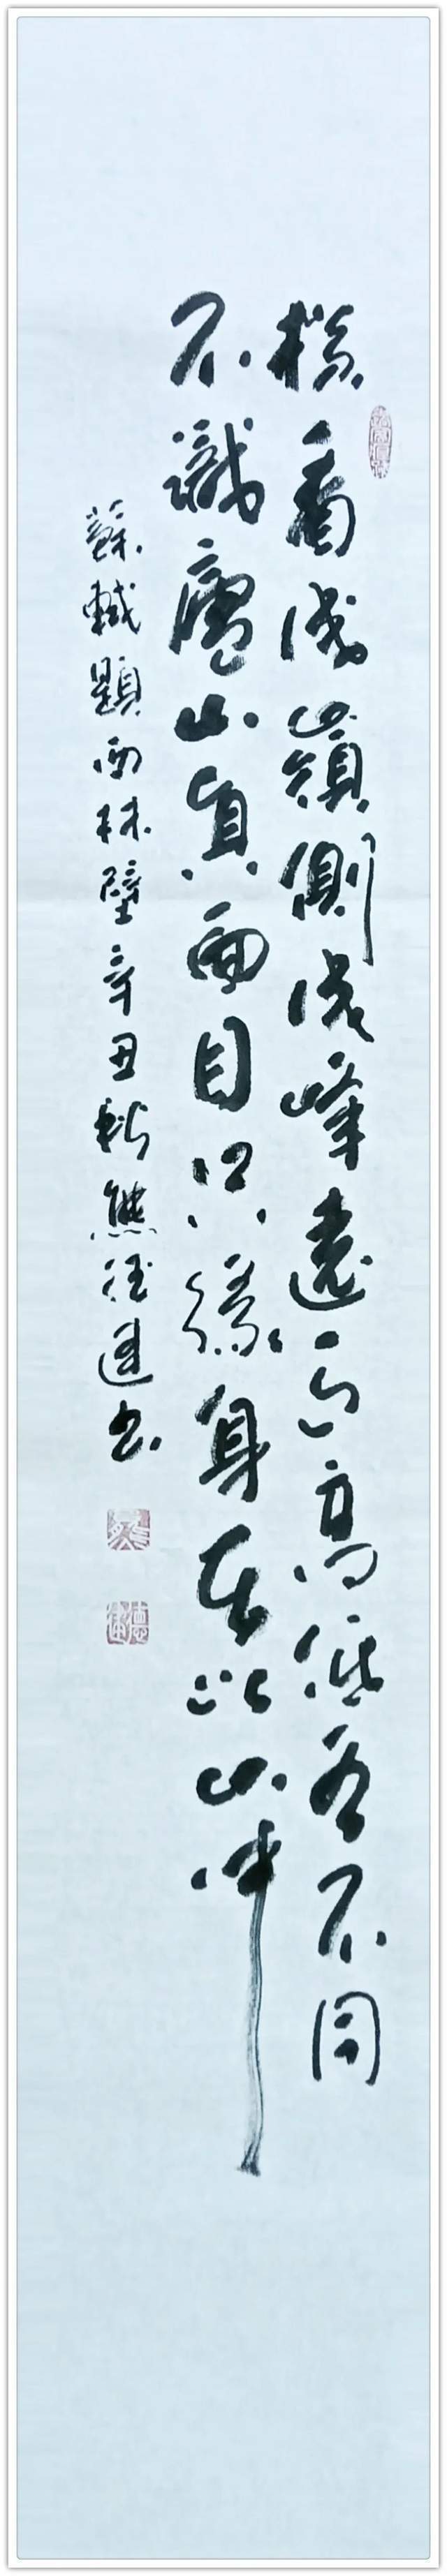 横看成嶺側成峰遠近高低各不同
不識廬山真面目只緣身在此山中
蘇軾題西林壁辛丑秋熊德建書